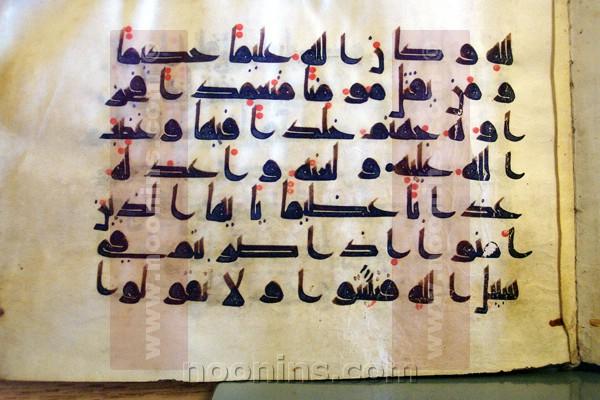 لله وكان الله عليما حكيما
ومن يقتل مومنا متعمدا فجز
اوه جهنم خلدا فيها وغضب
الله عليه ولعنه واعد له
عذابا عظيما يايها الذين
امنوا اذا ضربتم في
سبيل الله فتبينوا ولا تقولوا
noonins.com